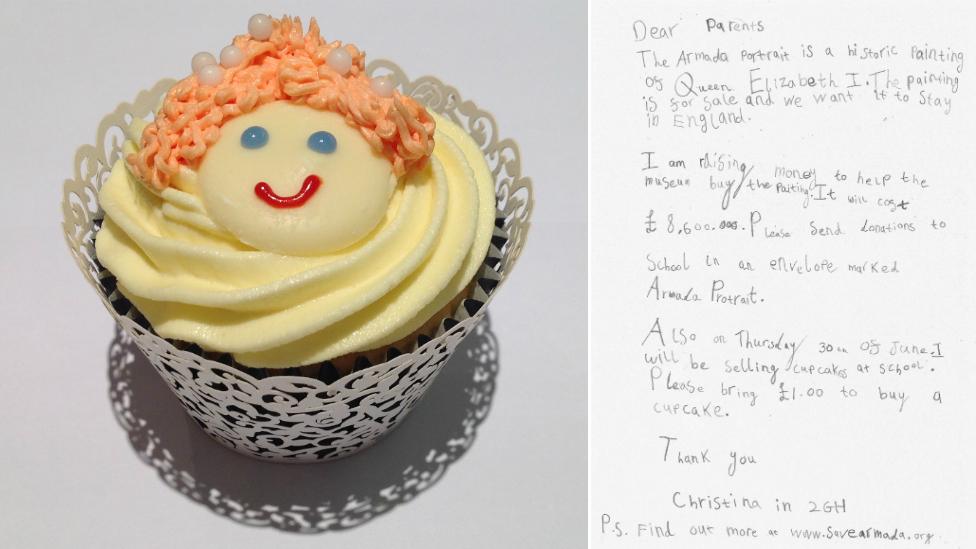 Dear Parents
The Armada Portrait is a historic Painting
of Queen Elizabeth I. The painting
is for sale and we want it to stay
in England.
I am raising money to help the
museum buy the Paiting. It will cost
£ 8,600.000. Please send donations to
School in an envelope marked
Armada Protrait.
Also on Thursday 30th of June I
will be selling cupcakes at school.
Please bring £1.00 to buy a
cupcake.
Thank you
Christina in 2GH
P.S. Find out more at www.savearmada.org.